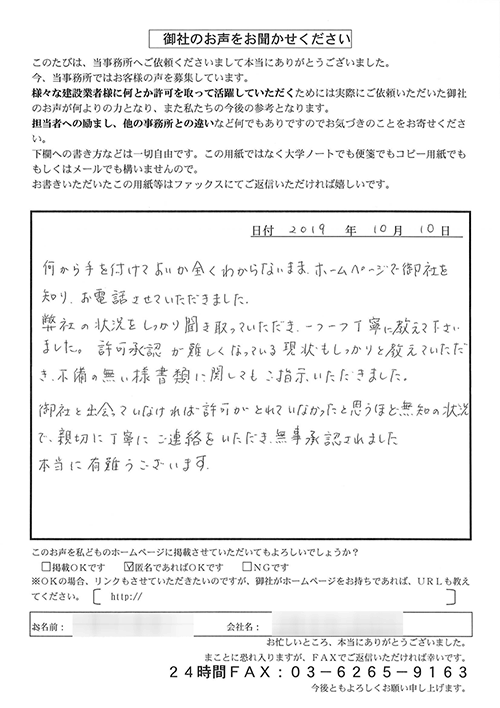 御社のお声をお聞かせください
このたびは、当事務所へご依頼くださいまして本当にありがとうございました。
今、当事務所ではお客様の声を募集しています。
様々な建設業者様に何とか許可を取って活躍していただくためには実際にご依頼いただいた御社
のお声が何よりの力となり、また私たちの今後の参考となります。
担当者への励まし、他の事務所との違いなど何でもありですのでお気づきのことをお寄せくださ
い。
下欄への書き方などは一切自由です。この用紙ではなく大学ノートでも便箋でもコピー用紙でも
もしくはメールでも構いませんので。
お書きいただいたこの用紙等はファックスにてご返信いただければ嬉しいです。
日付 2019 年 10月 10日
何から手を付けてよいか全くわからないまま、ホームページで御社を
知り、お電話させていただきました。
弊社の状況をしっかり聞き取っていただき、一つ一つ丁寧に教えて下さい
ました。許可承認が難しくなっている現状もしっかりと教えていただ
き、不備の無い様書類に関してもご指示いただきました。
御社と出会っていなければ許可がとれていなかったと思うほど無知の状況
で、親切に丁寧にご連絡をいただき、無事承認されました
本当に有難うございます。
このお声を私どものホームページに掲載させていただいてもよろしいでしょうか?
□掲載OKです ☑匿名であればOKです □NGです
※OKの場合、リンクもさせていただきたいのですが、御社がホームページをお持ちであれば、URLも教え
てください。〔 http:// 〕
お名前: 会社名:
お忙しいところ、本当にありがとうございました。
まことに恐れ入りますが、FAXでご返信いただければ幸いです。
24時間FAX:03-6265-9163
今後ともよろしくお願い申し上げます。